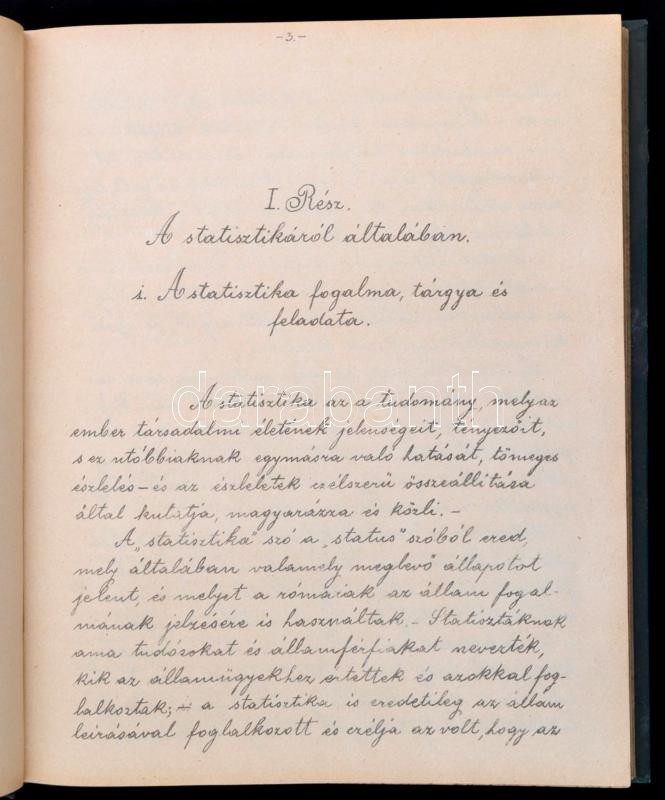 -3.-
I. Rész.
A statisztikáról általában.
1. A statisztika fogalma, tárgya és
feladata.
A statisztika az a tudomány, mely az
ember társadalmi életének jelenségeit, tényezőit,
s ez utóbbiaknak egymásra való hatását, tömeges
észlelés – és az észleletek czélszerű összeállítása
által kutatja, magyarázza és közli. –
A „statisztika" szó a „status" szóból ered,
mely általában valamely meglevő állapotot
jelent, és melyet a rómaiak az állam fogal-
mának jelzésére is használtak. – Statisztáknak
ama tudósokat és államférfiakat nevezték,
kik az államügyekhez értettek és azokkal fog-
lalkoztak; – a statisztika is eredetileg az állam
leirásával foglalkozott és czélja az volt, hogy az
darabanth